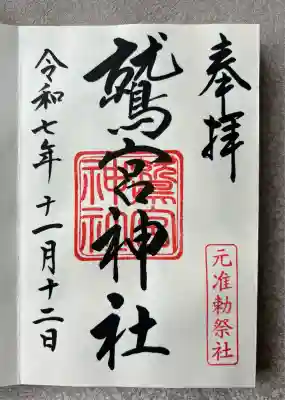 奉拝
元准勅祭社
鷲宮神社
鷲宮
神社
令和七年十一月十二日